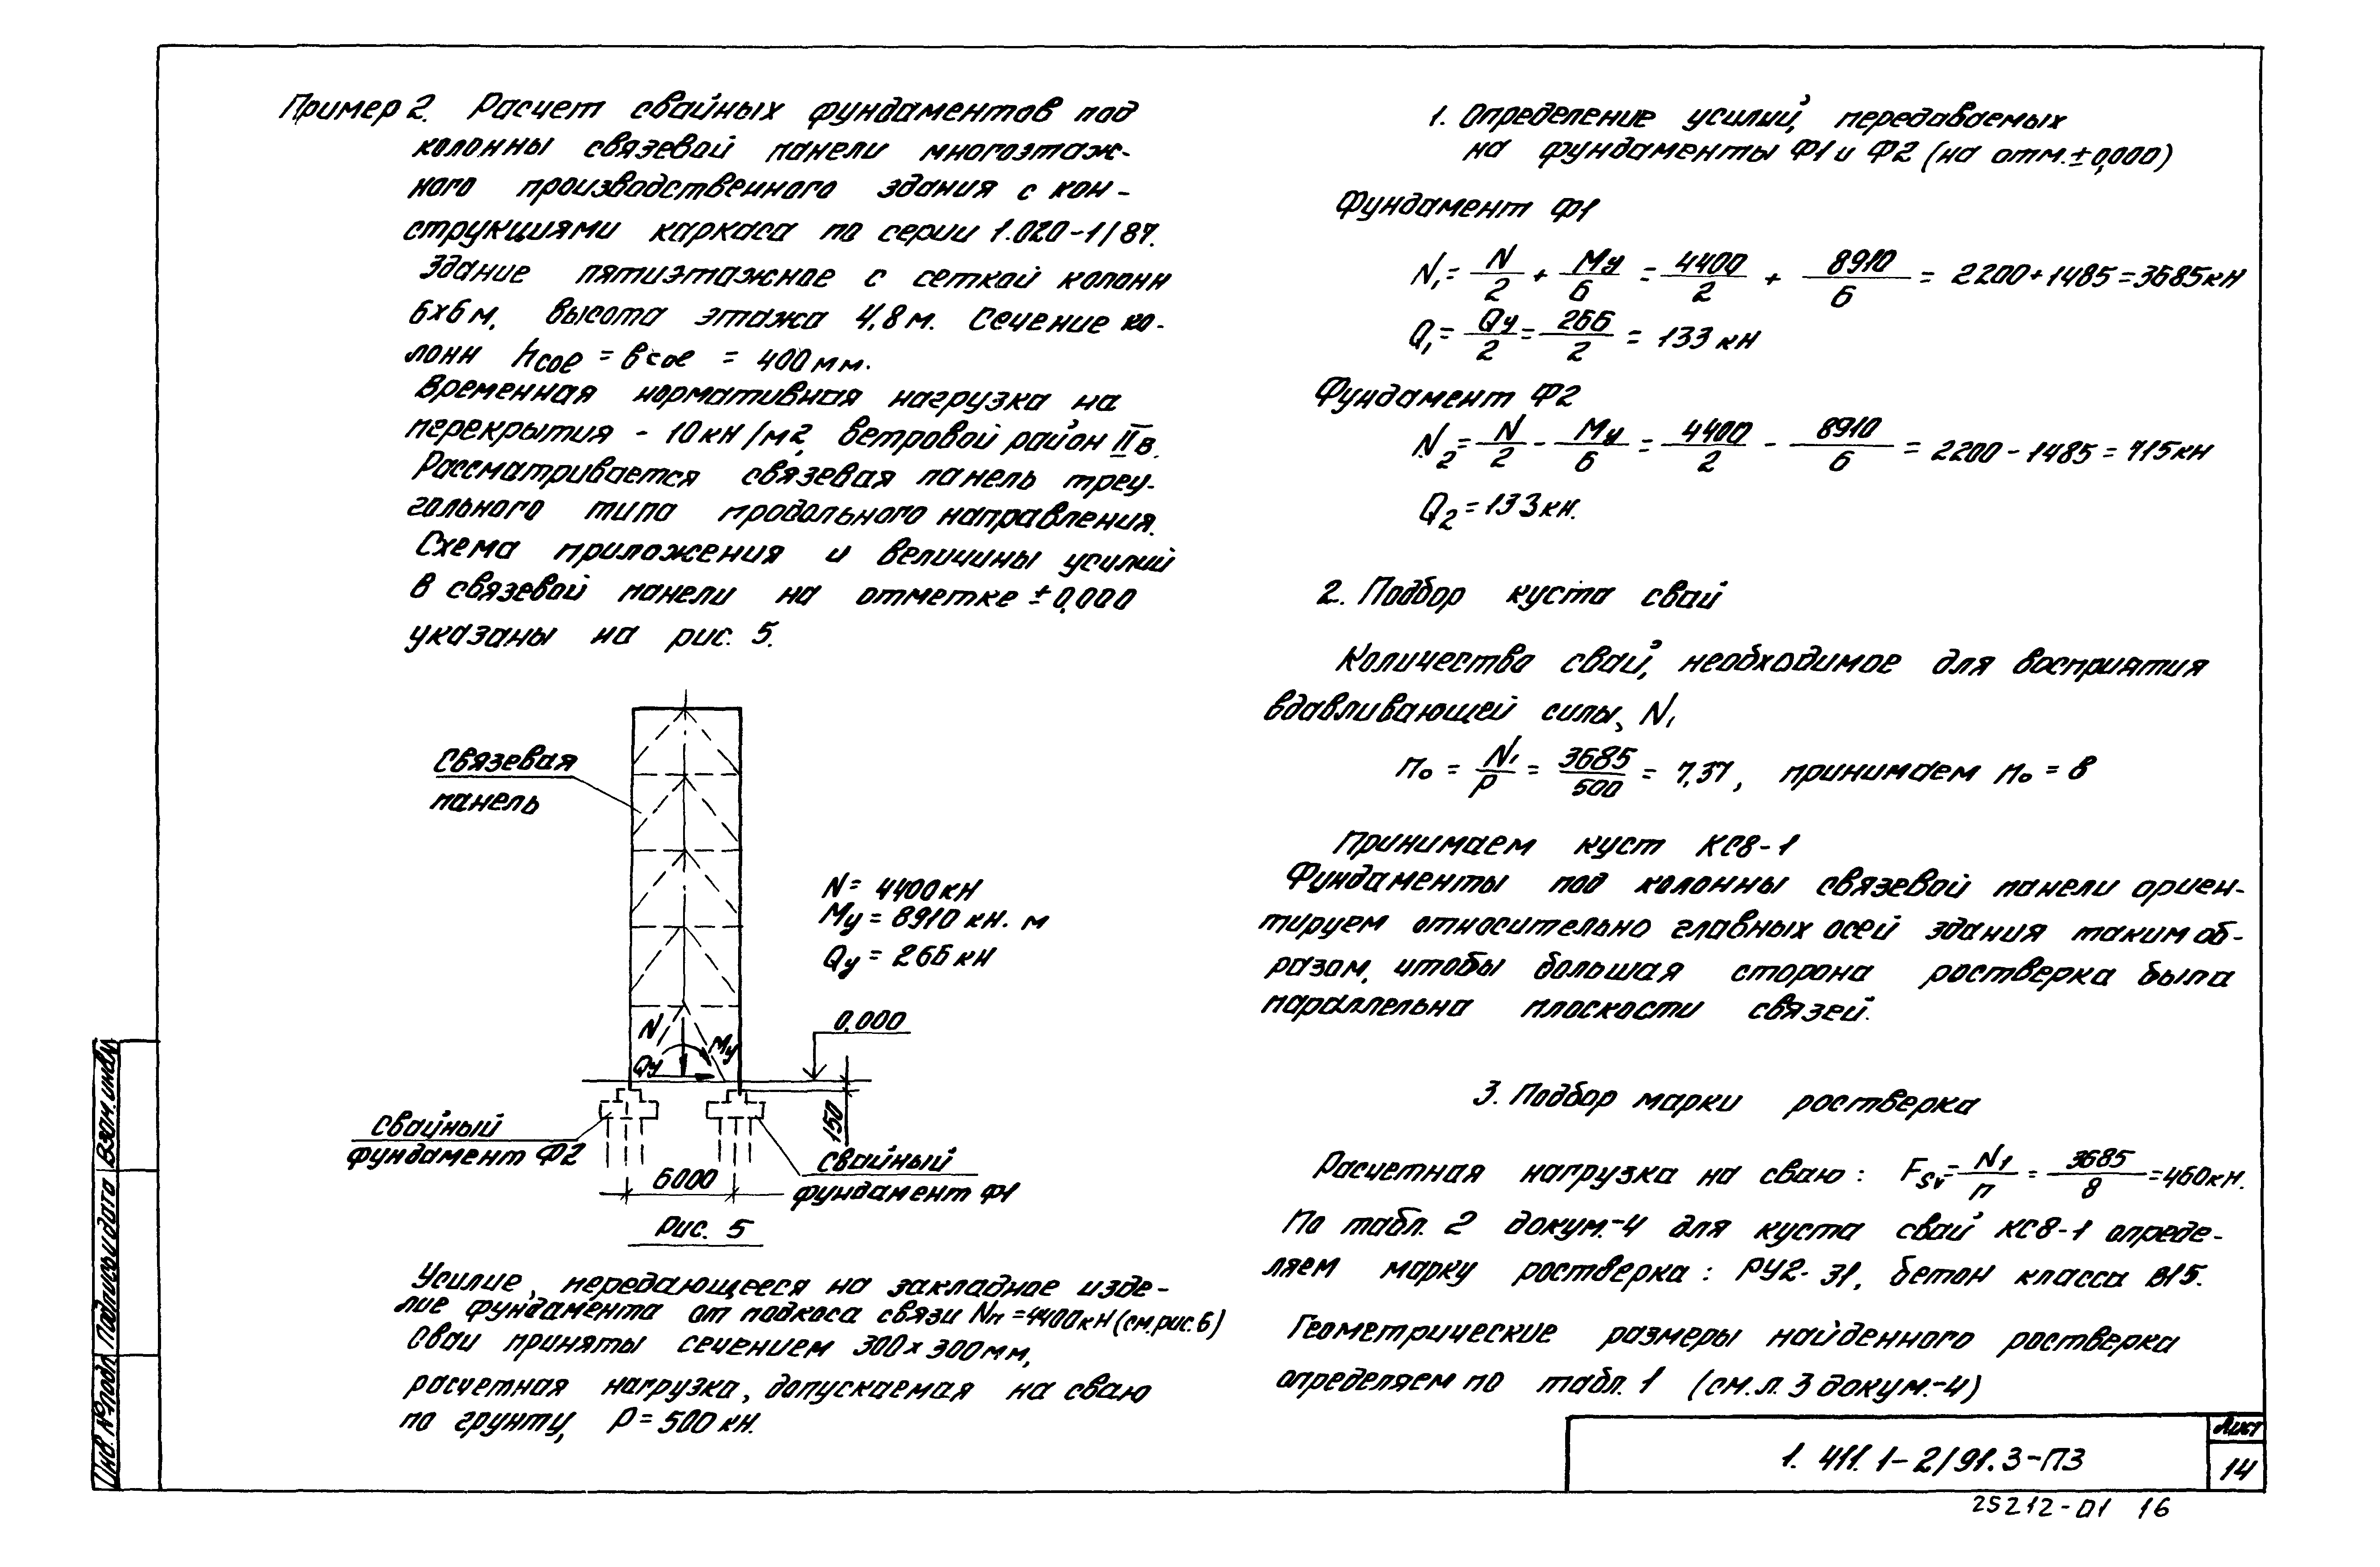 Пример 2. Расчет свайных фундаментов под
колонны связевой панели многоэтаж-
ного производственного здания с кон-
струкциями каркаса по серии 1.020-1/87.
Здание пятиэтажное с сеткой колонн
6×6 м, высота этажа 4,8 м. Сечение ко-
лонн hcol = bcol = 400 мм.
Временная нормативная нагрузка на
перекрытия - 10 кН/м2, ветровой район IIв.
Рассматривается связевая панель треу-
гольного типа продольного направления.
Схема приложения и величины усилий
в связевой панели на отметке ±0,000
указаны на рис. 5.
Связевая
панель
N = 4400 кН
Му = 8910 кН. м
Qу = 266 кН
0,000
N
Му
Qу
150
Свайный
фундамент Ф2
6000
Свайный
фундамент Ф1
Рис. 5
Усилие, передающееся на закладное изде-
лие фундамента от подкоса связи Nп = 4400 кН (см. рис. 6)
Сваи приняты сечением 300×300 мм,
расчетная нагрузка, допускаемая на сваю
по грунту, P = 500 кН.
1. Определение усилий, передаваемых
на фундаменты Ф1 и Ф2 (на отм. ±0,000)
Фундамент Ф1
N1 = N/2 + Му/6 = 4400/2 + 8910/6 = 2200 + 1485 = 3685 кН
Q1 = Qу/2 = 266/2 = 133 кН
Фундамент Ф2
N2 = N/2 - Му/6 = 4400/2 - 8910/6 = 2200 - 1485 = 715 кН
Q2 = 133 кН.
2. Подбор куста свай
Количество свай, необходимое для восприятия
вдавливающей силы, N1
no = N1/P = 3685/500 = 7,37, принимаем no = 8
Принимаем куст КС8-1
Фундаменты под колонны связевой панели ориен-
тируем относительно главных осей здания таким об-
разом, чтобы большая сторона ростверка была
параллельна плоскости связей.
3. Подбор марки ростверка
Расчетная нагрузка на сваю: Fsv = N1/n = 3685/8 = 460 кН.
По табл. 2 докум.-4 для куста свай КС8-1 опреде-
ляем марку ростверка: РУ2-31, бетон класса В15.
Геометрические размеры найденного ростверка
определяем по табл. 1 (см. л. 3 докум.-4)
1.411.1-2/91.3-ПЗ
Лист
14
25212-01 16
Инв. № подл. Подпись и дата Взам. инв. №